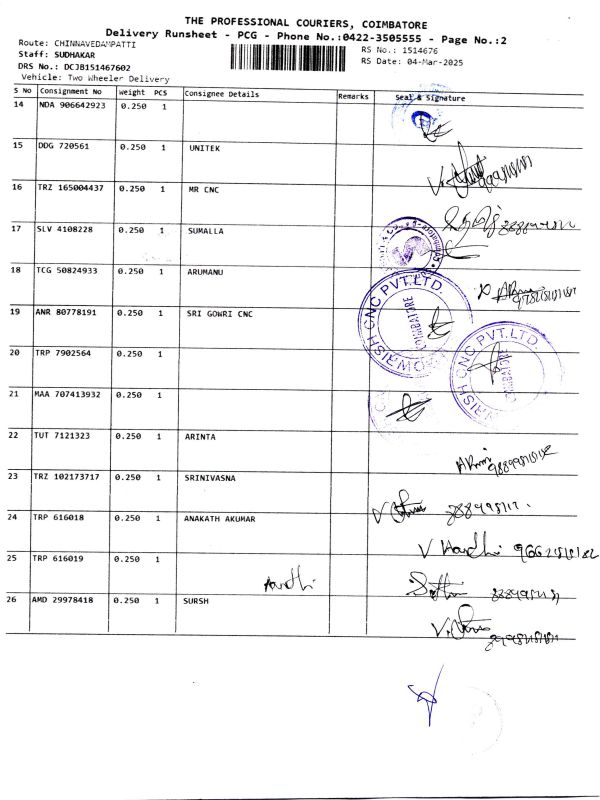 THE PROFESSIONAL COURIERS, COIMBATORE
Delivery Runsheet - PCG - Phone No.:0422-3505555 - Page No.:2
Route: CHINNAVEDAMPATTI RS No.: 1514676
Staff: SUDHAKAR RS Date: 04-Mar-2025
DRS No.: DCJB151467602
Vehicle: Two Wheeler Delivery
S No Consignment No Weight PCS Consignee Details Remarks Seal & Signature
14 NDA 906642923 0.250 1
15 DDG 720561 0.250 1 UNITEK
16 TRZ 165004437 0.250 1 MR CNC
17 SLV 4108228 0.250 1 SUMALLA
18 TCG 50824933 0.250 1 ARUMANU
19 ANR 80778191 0.250 1 SRI GOWRI CNC
CNC PVT.LTD.
COIMBATORE
20 TRP 7902564 0.250 1
CNC PVT.LTD.
21 MAA 707413932 0.250 1
22 TUT 7121323 0.250 1 ARINTA
23 TRZ 102173717 0.250 1 SRINIVASNA
24 TRP 616018 0.250 1 ANAKATH AKUMAR
25 TRP 616019 0.250 1
26 AMD 29978418 0.250 1 SURSH